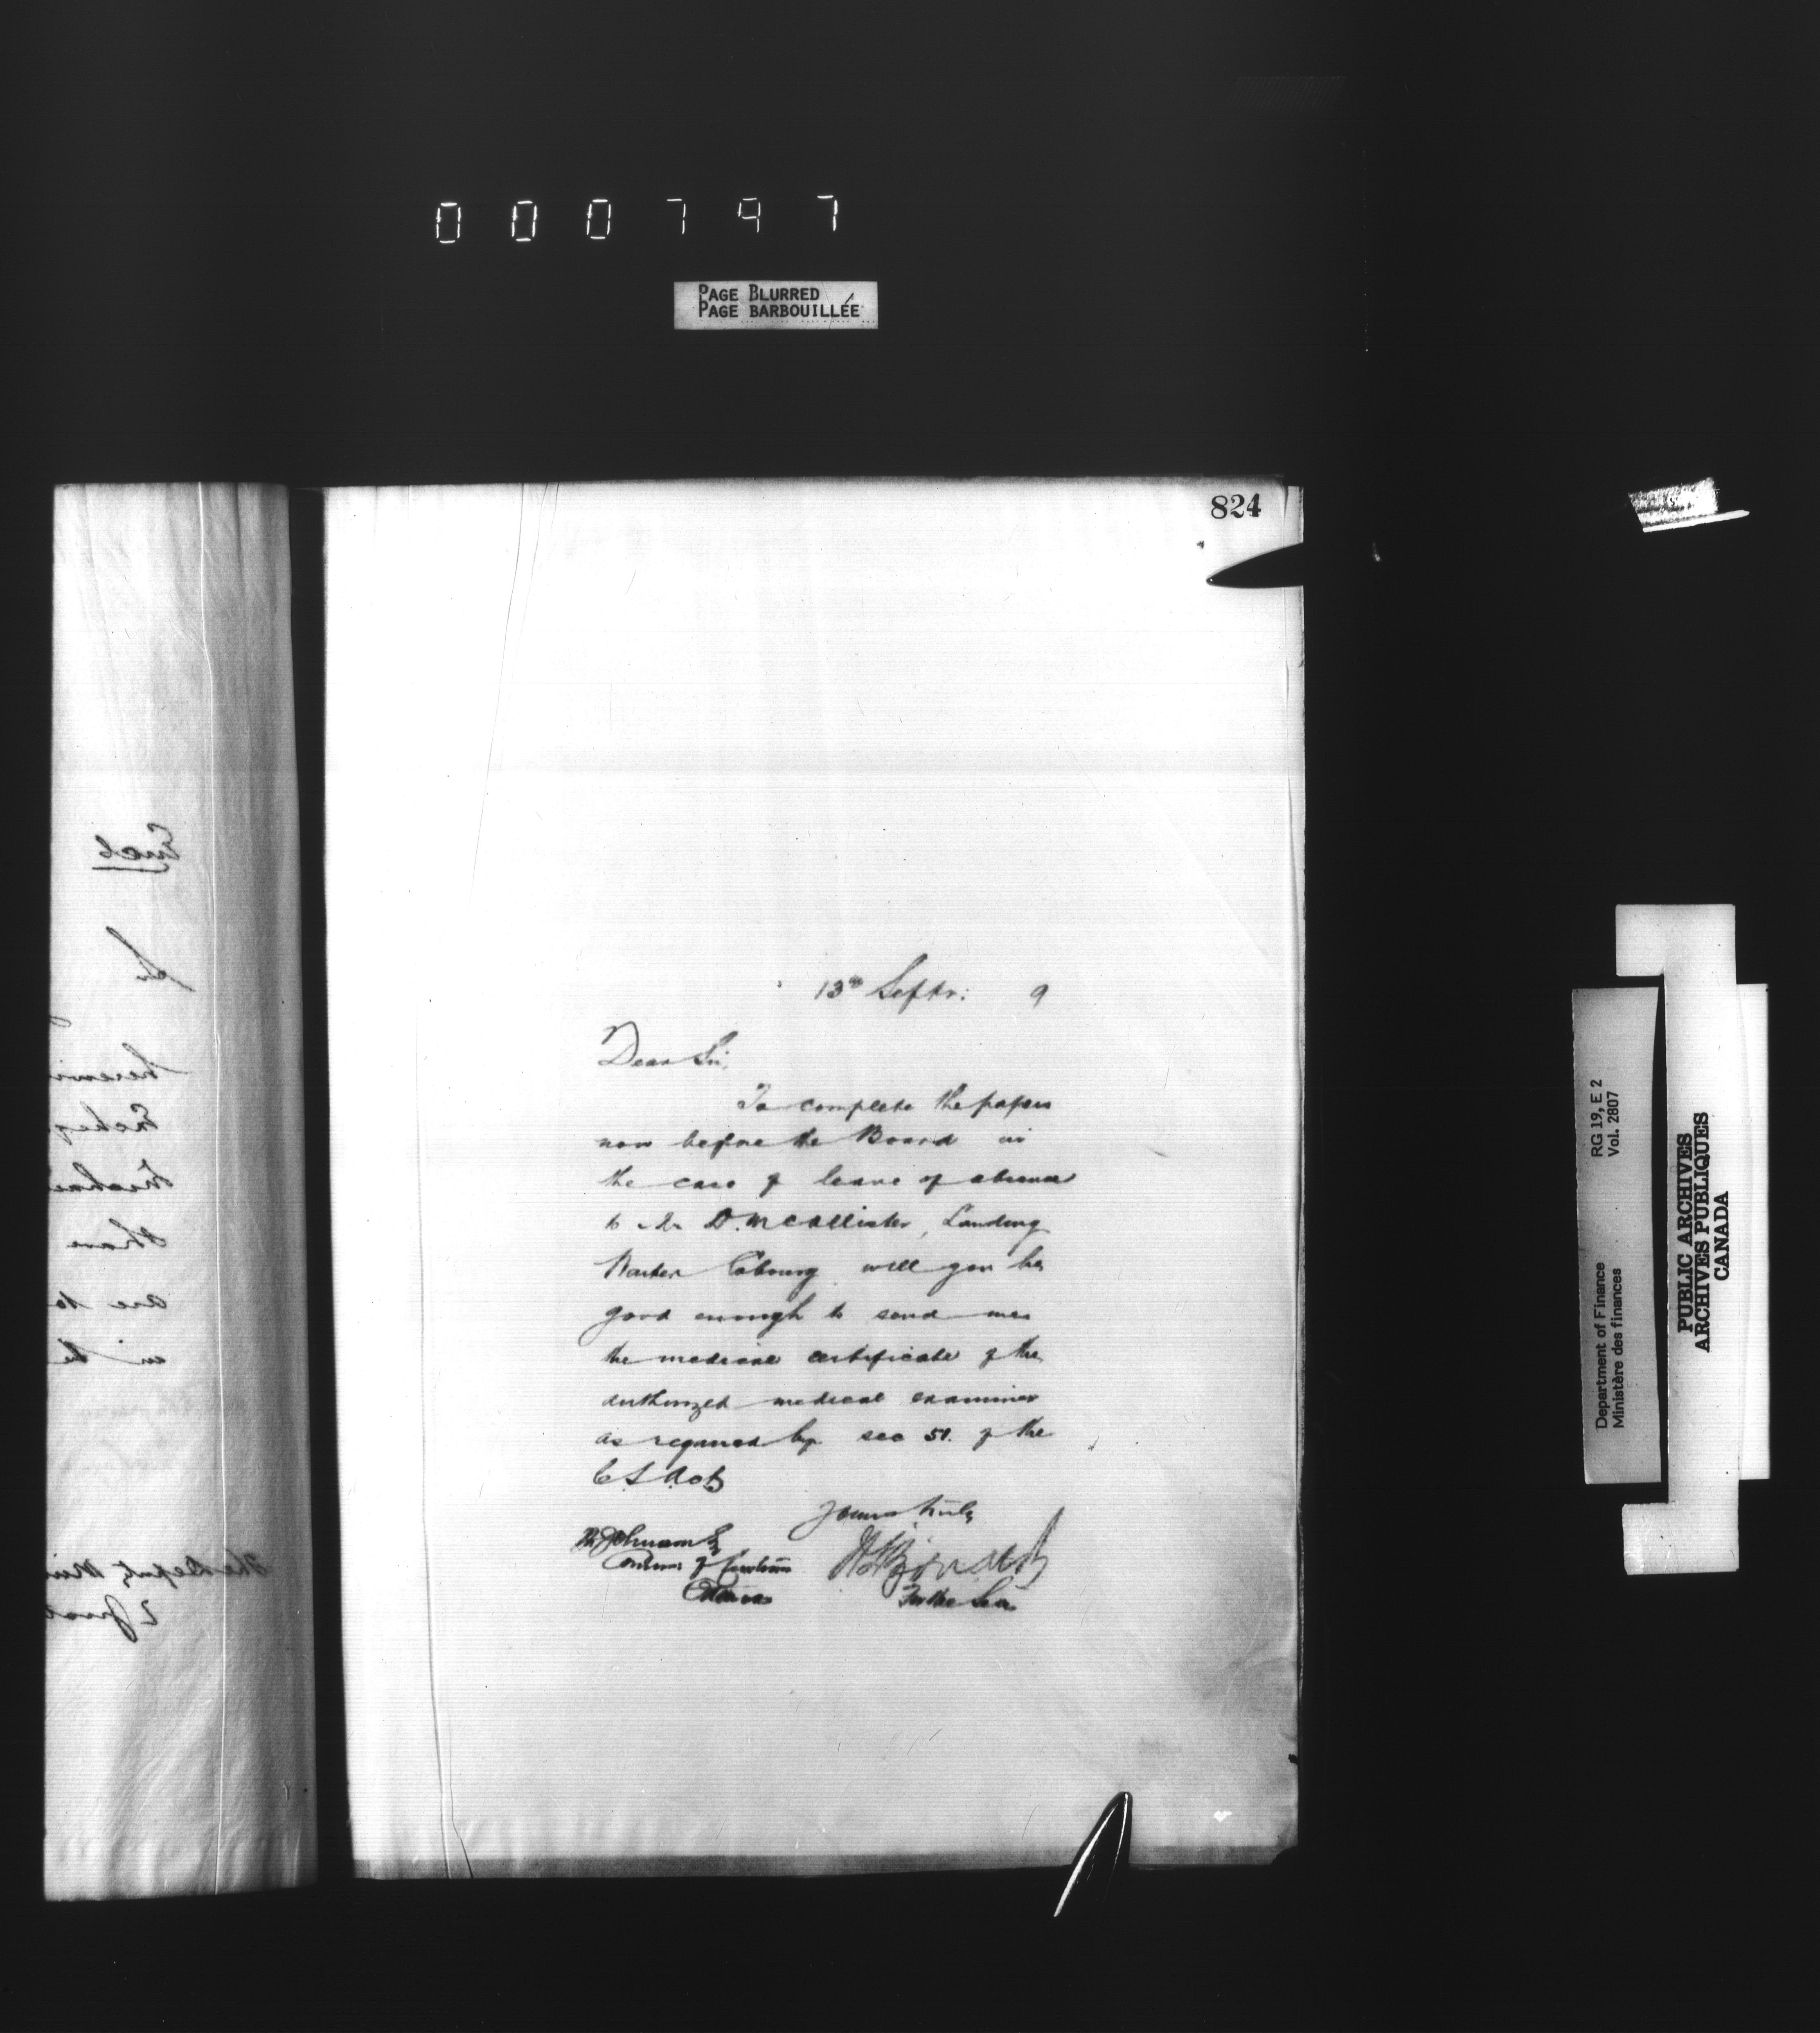 000797
PAGE BLURRED
PAGE BARBOUILLÉE
824
13th Septr: 9
Dear Sir,
To complete the papers
now before the Board in
the case of leave of absence
to Mr D. McAllister, Landing
Waiter Cobourg will you be
good enough to send me
the medical certificate of the
authorized medical examiner
as required by sec 51. of the
C. S. Act
Yours truly
W. Johnson Esq
Commr of Customs
Ottawa
For the Secy
Encl
Sir
are to
in the
The Deputy Min
RG 19, E 2
Vol. 2807
Department of Finance
Ministère des finances
PUBLIC ARCHIVES
ARCHIVES PUBLIQUES
CANADA